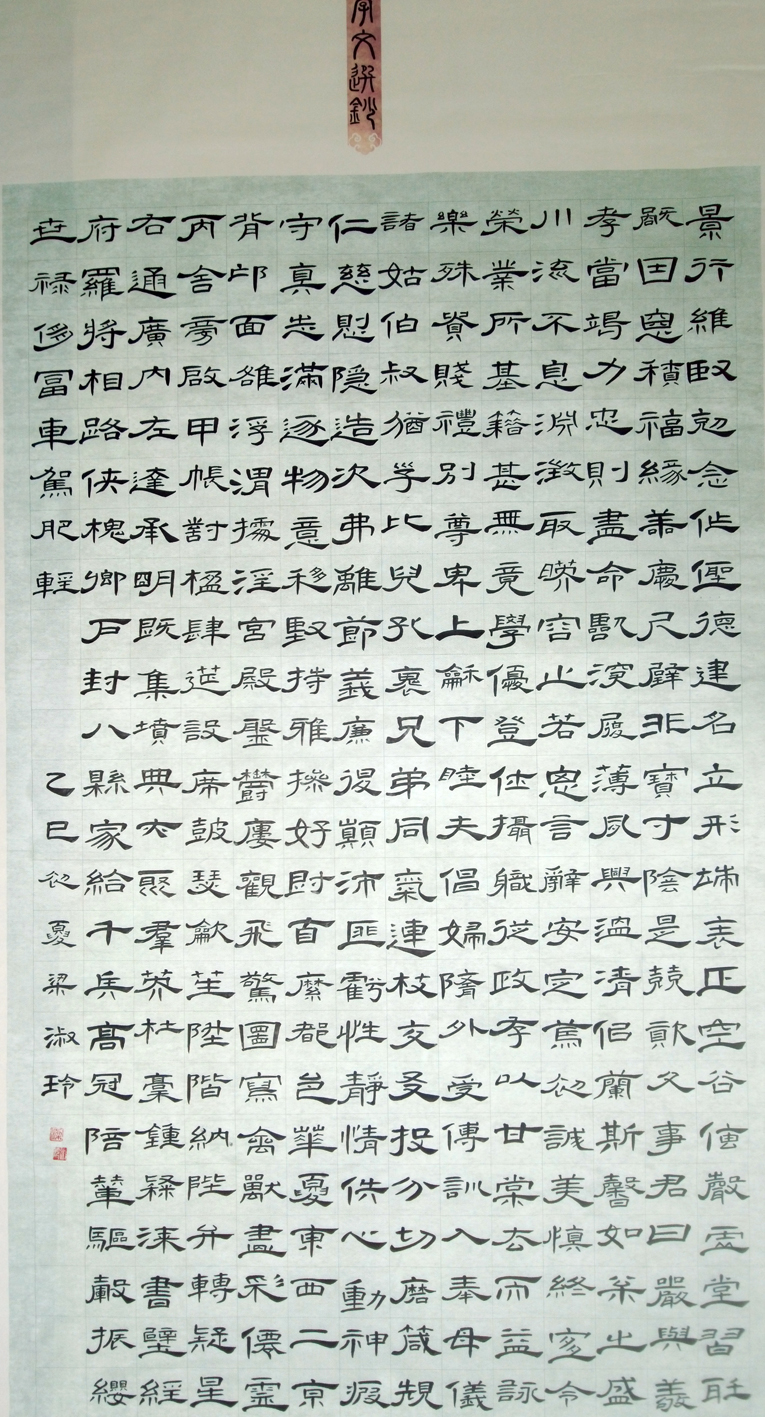 字文選鈔
景行維臤剋念作聖德建名立形端表正空谷傳聲虛堂習聽
禍因惡積福緣善慶尺璧非寶寸陰是競資父事君曰嚴與敬
孝當竭力忠則盡命臨深履薄夙興溫凊侣蘭斯馨如松之盛
川流不息淵澂取暎容止若思言辭安定篤初誠美慎終宜令
榮業所基籍甚無竟學優登仕攝職從政存以甘棠去而益詠
樂殊貴賤禮別尊卑上龢下睦夫倡婦隨外受傅訓入奉母儀
諸姑伯叔猶子比兒孔褱兄弟同氣連枝交友投分切磨箴規
仁慈惻隐造次弗離節義廉退顛沛匪虧性靜情佚心動神疲
守真志滿逐物意移堅持雅操好爵自縻都邑華夏東西二京
背邙面雒浮渭據涇宮殿盤鬱樓觀飛驚圖寫禽獸畫彩僊靈
丙舍旁啟甲帳對楹肆筵設席鼓瑟龡笙陞階納陛弁轉疑星
右通廣內左達承明既集墳典亦聚羣英杜稾鍾隸漆書壁經
府羅將相路俠槐卿戶封八縣家給千兵高冠陪輦驅轂振纓
世祿侈富車駕肥輕
乙巳初夏梁淑玲